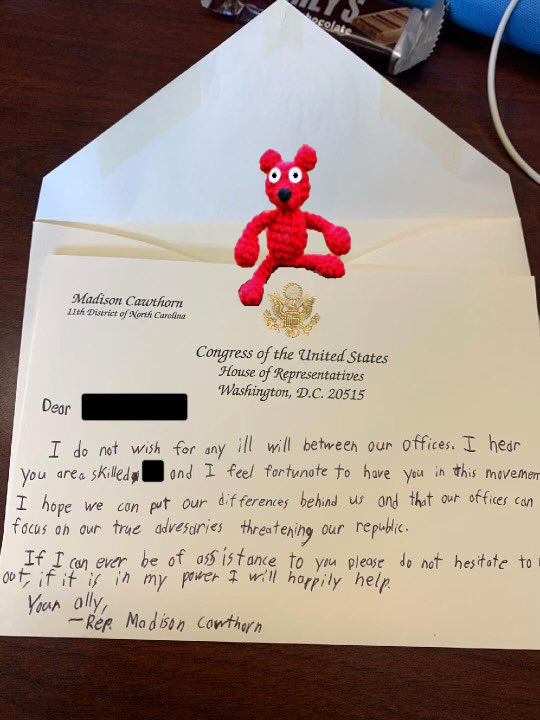 chocolate
Madison Cawthorn
11th District of North Carolina
Congress of the United States
House of Representatives
Washington, D.C. 20515
Dear
I do not wish for any ill will between our offices. I hear
you are a skilled and I feel fortunate to have you in this movemen
I hope we can put our differences behind us and that our offices can
focus on our true advesaries threatening our republic.
If I can ever be of assistance to you please do not hesitate to
out, if it is in my power I will happily help.
Your ally,
—Rep. Madison Cawthorn